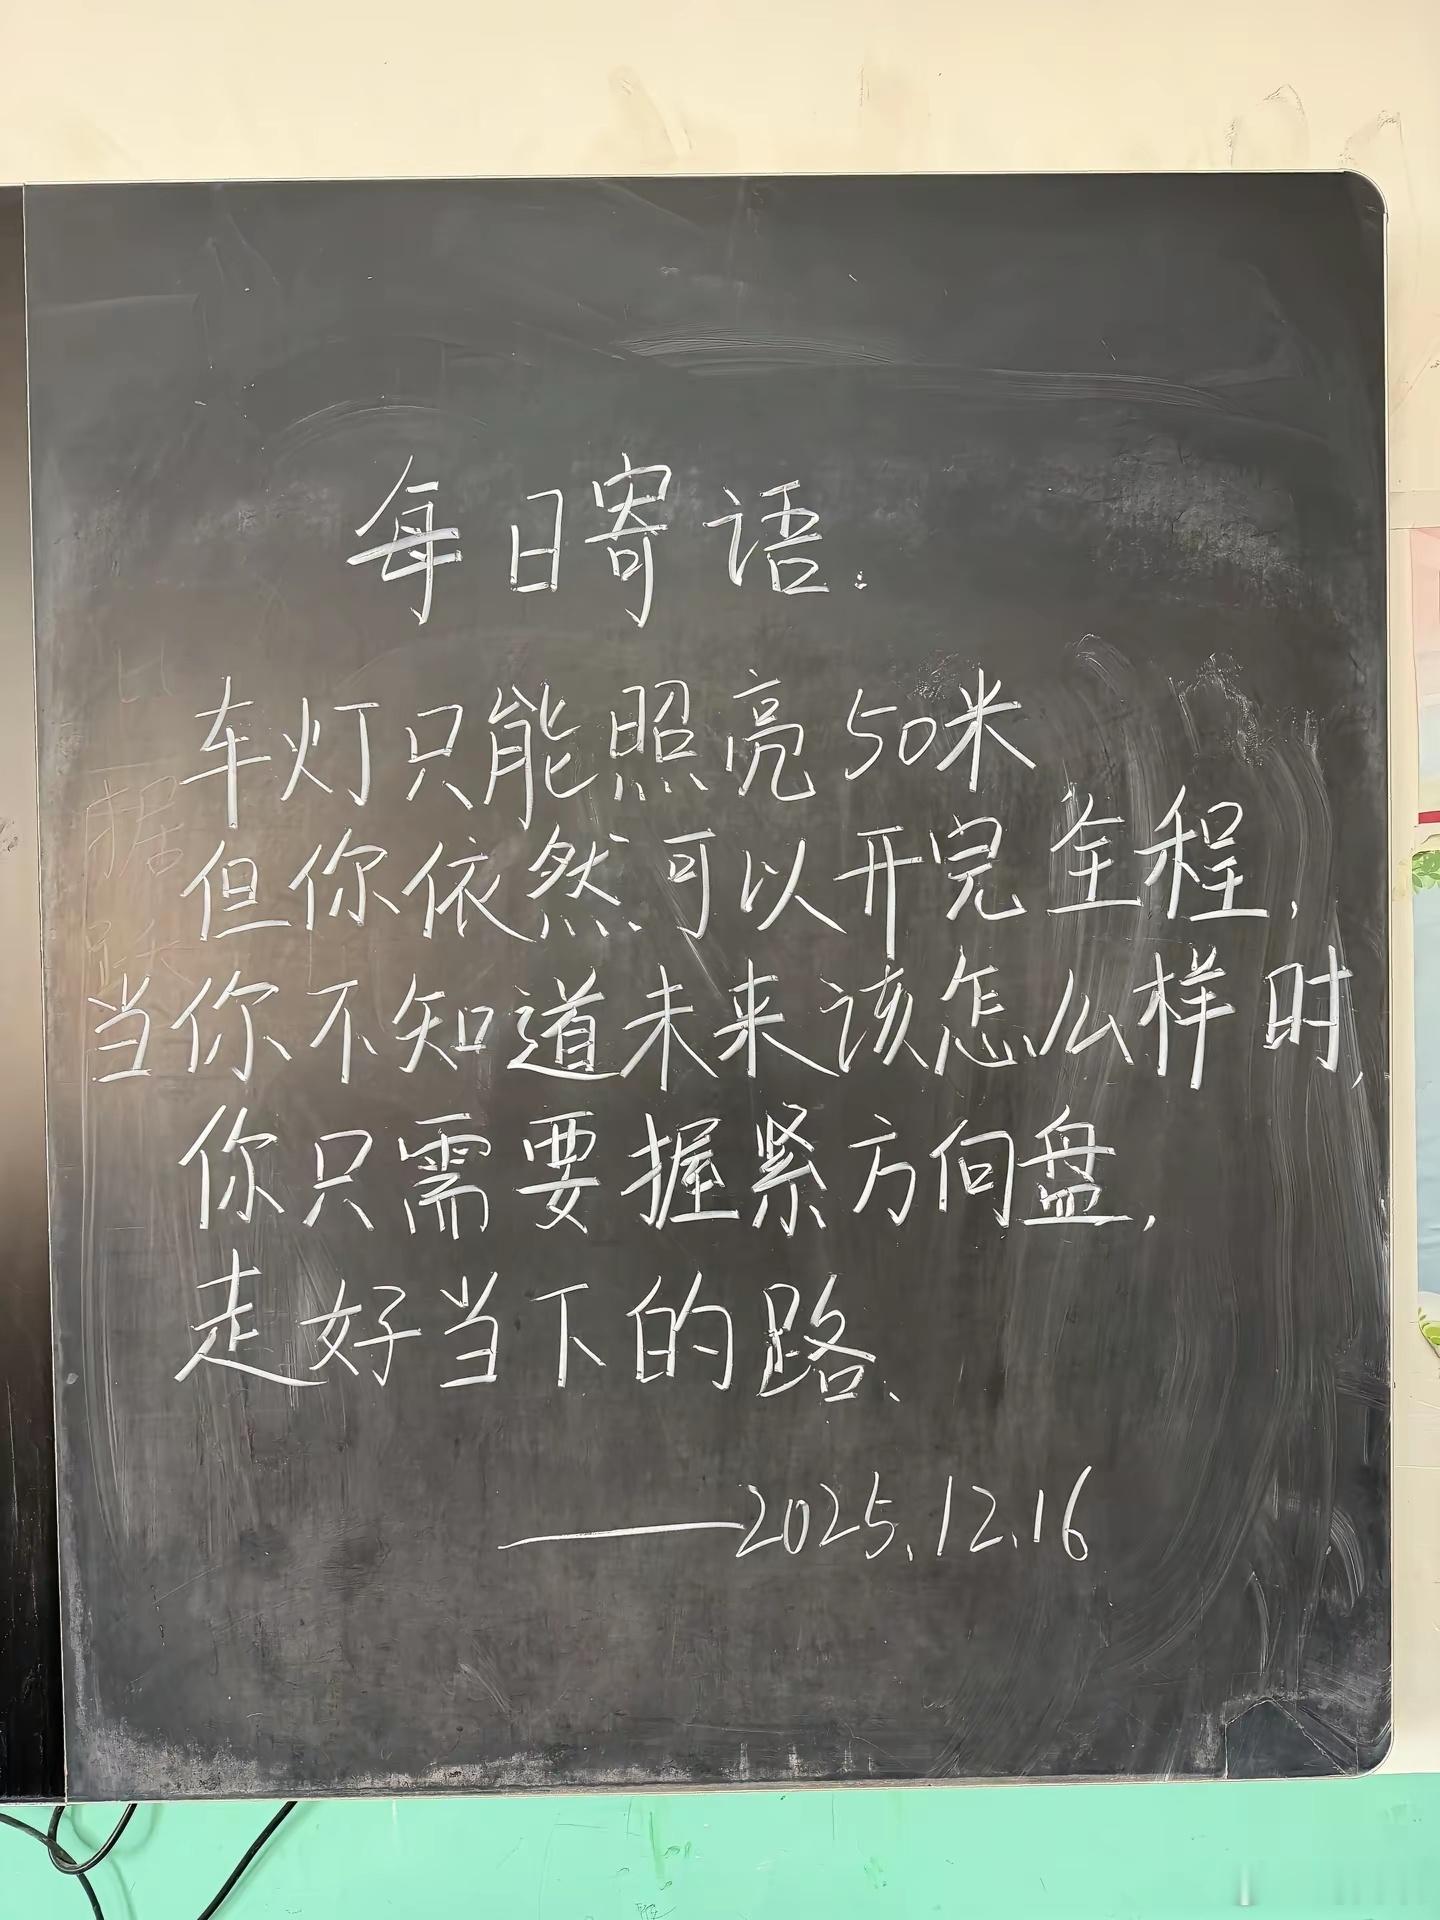 每日寄语:
车灯只能照亮50米
但你依然可以开完全程,
当你不知道未来该怎么样时,
你只需要握紧方向盘,
走好当下的路、
——2025.12.16